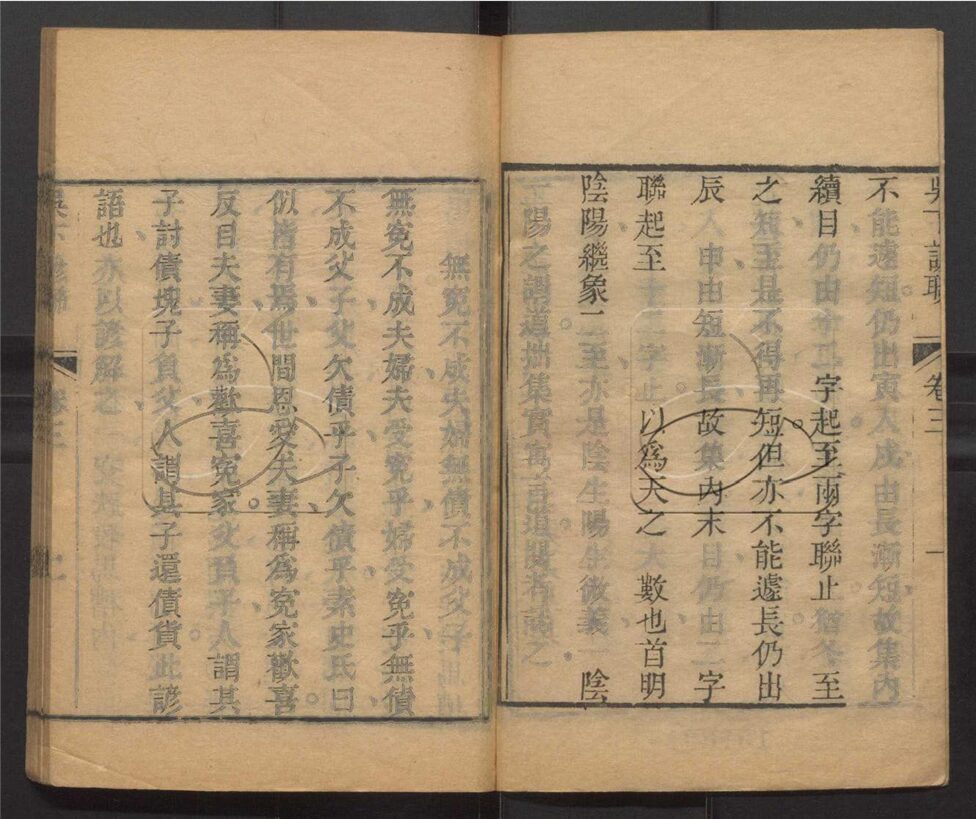 吳下諺聯
卷三
一
不能遽短仍出寅入戌由長漸短故集內
續目仍由十二字起至兩字聯止猶冬至
之短至是不得再短但亦不能遽長仍出
辰入申由短漸長故集內末目仍由二字
聯起至十二字止以為天之大數也首明
陰陽繼象二至亦是陰生陽生微義一陰
一陽之謂道拙集實寓言道
無寃不成夫婦無債不成父子
無寃不成夫婦夫受寃乎婦受寃乎無債
不成父子父欠債乎子欠債乎素史氏曰
似皆有焉世間恩愛夫妻稱為寃家歡喜
反目夫妻稱為歡喜寃家父負子人謂其
子討債塊子負父人謂其子還債貨此諺
語也亦以諺解之